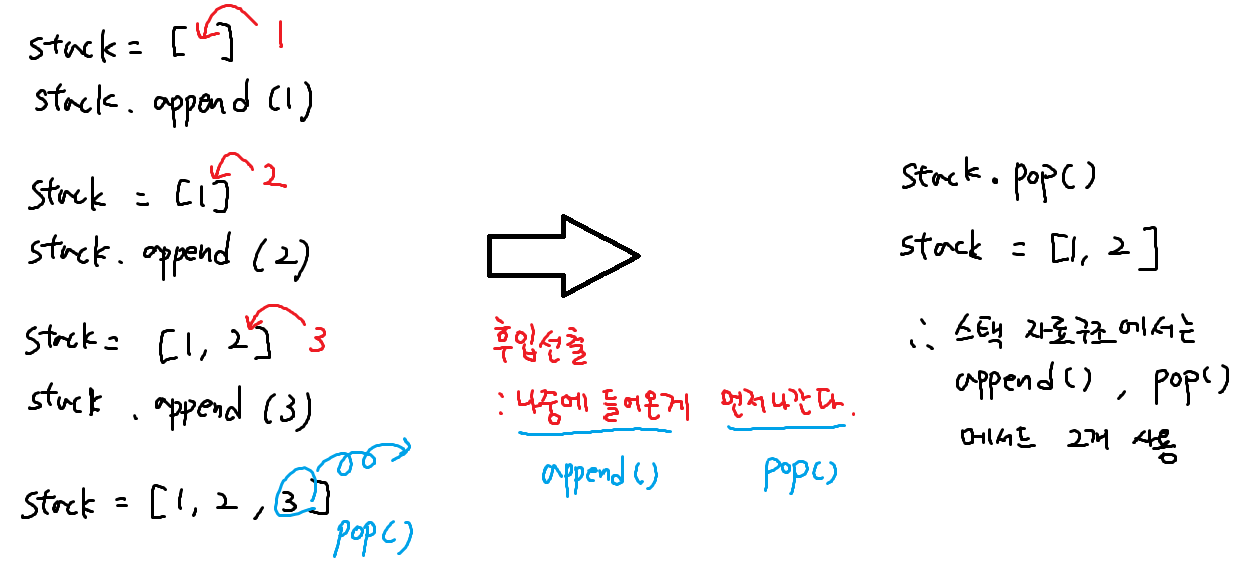 stack = [ ] 1
stack. append (1)
stack = [1] 2
stack. append (2)
stack = [1, 2] 3
stack . append (3)
stack = [1, 2 , 3 ]
pop()
후입선출
: 나중에 들어온게 먼저나간다.
append() pop()
stack. pop()
stack = [1, 2 ]
∴ 스택 자료구조에서는
append() , pop()
메서드 2개 사용